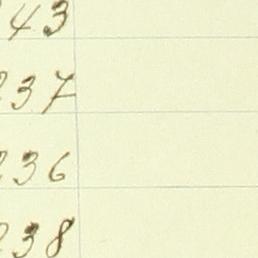 243
237
236
238